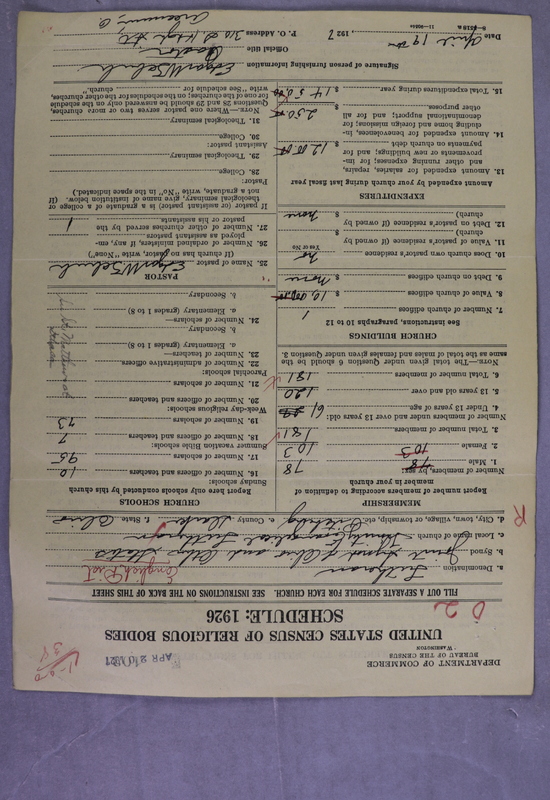 DEPARTMENT OF COMMERCE
BUREAU OF THE CENSUS
WASHINGTON
APR 21 1927
UNITED STATES CENSUS OF RELIGIOUS BODIES
SCHEDULE: 1926
FILL OUT A SEPARATE SCHEDULE FOR EACH CHURCH. SEE INSTRUCTIONS ON THE BACK OF THIS SHEET
a. Denomination Lutheran
English Dist
b. Synod Joint Synod of Ohio and Other States
c. Local name of church Evangelical Lutheran
d. City, town, village, or township, etc. Pittsburg e. County Darke f. State Ohio
MEMBERSHIP
Report number of members according to definition of member in your church
Number of members, by sex:
1. Male 78 78
2. Female 103 103
3. Total number of members 181
Number of members under and over 13 years old:
4. Under 13 years of age 61
5. 13 years old and over 120
6. Total number of members 181
NOTE.—The total given under Question 6 should be the same as the total of males and females given under Question 3.
CHURCH BUILDINGS
See instructions, paragraphs 10 to 12
7. Number of church edifices 1
8. Value of church edifices $ 10,000.00
9. Debt on church edifices $ none
10. Does church own pastor's residence no
Yes or No
11. Value of pastor's residence (if owned by church) $
12. Debt on pastor's residence (if owned by church) $ none
EXPENDITURES
Amount expended by your church during last fiscal year
13. Amount expended for salaries, repairs, and other running expenses; for improvements or new buildings; and for payments on church debt $ 1200.00
14. Amount expended for benevolences, including home and foreign missions; for denominational support; and for all other purposes $ 250.00
15. Total expenditures during year $ 1450.00
CHURCH SCHOOLS
Report here only schools conducted by this church
Sunday schools:
16. Number of officers and teachers 10
17. Number of scholars 95
Summer vacation Bible schools:
18. Number of officers and teachers 7
19. Number of scholars 73
Week-day religious schools:
20. Number of officers and teachers
21. Number of scholars
Parochial schools:
22. Number of administrative officers
23. Number of teachers—
a. Elementary (grades 1 to 8)
b. Secondary
24. Number of scholars—
a. Elementary (grades 1 to 8)
b. Secondary
PASTOR
25. Name of pastor
(If church has no pastor, write "None")
26. Number of ordained ministers, if any, employed as assistant pastors
27. Number of other churches served by the pastor or his assistants 1
If pastor (or assistant pastor) is a graduate of a college or theological seminary, give name of institution below. (If not a graduate, write "No" in the space indicated.)
Pastor:
28. College
29. Theological seminary
Assistant pastor:
30. College
31. Theological seminary
NOTE.—Where one pastor serves two or more churches, Questions 25 and 28 should be answered only on the schedule for one of the churches; on the schedules for the other churches, write "See schedule for church."
Signature of person furnishing information
Official title Pastor
P. O. Address
Date April 19th 1927
8-4319 a